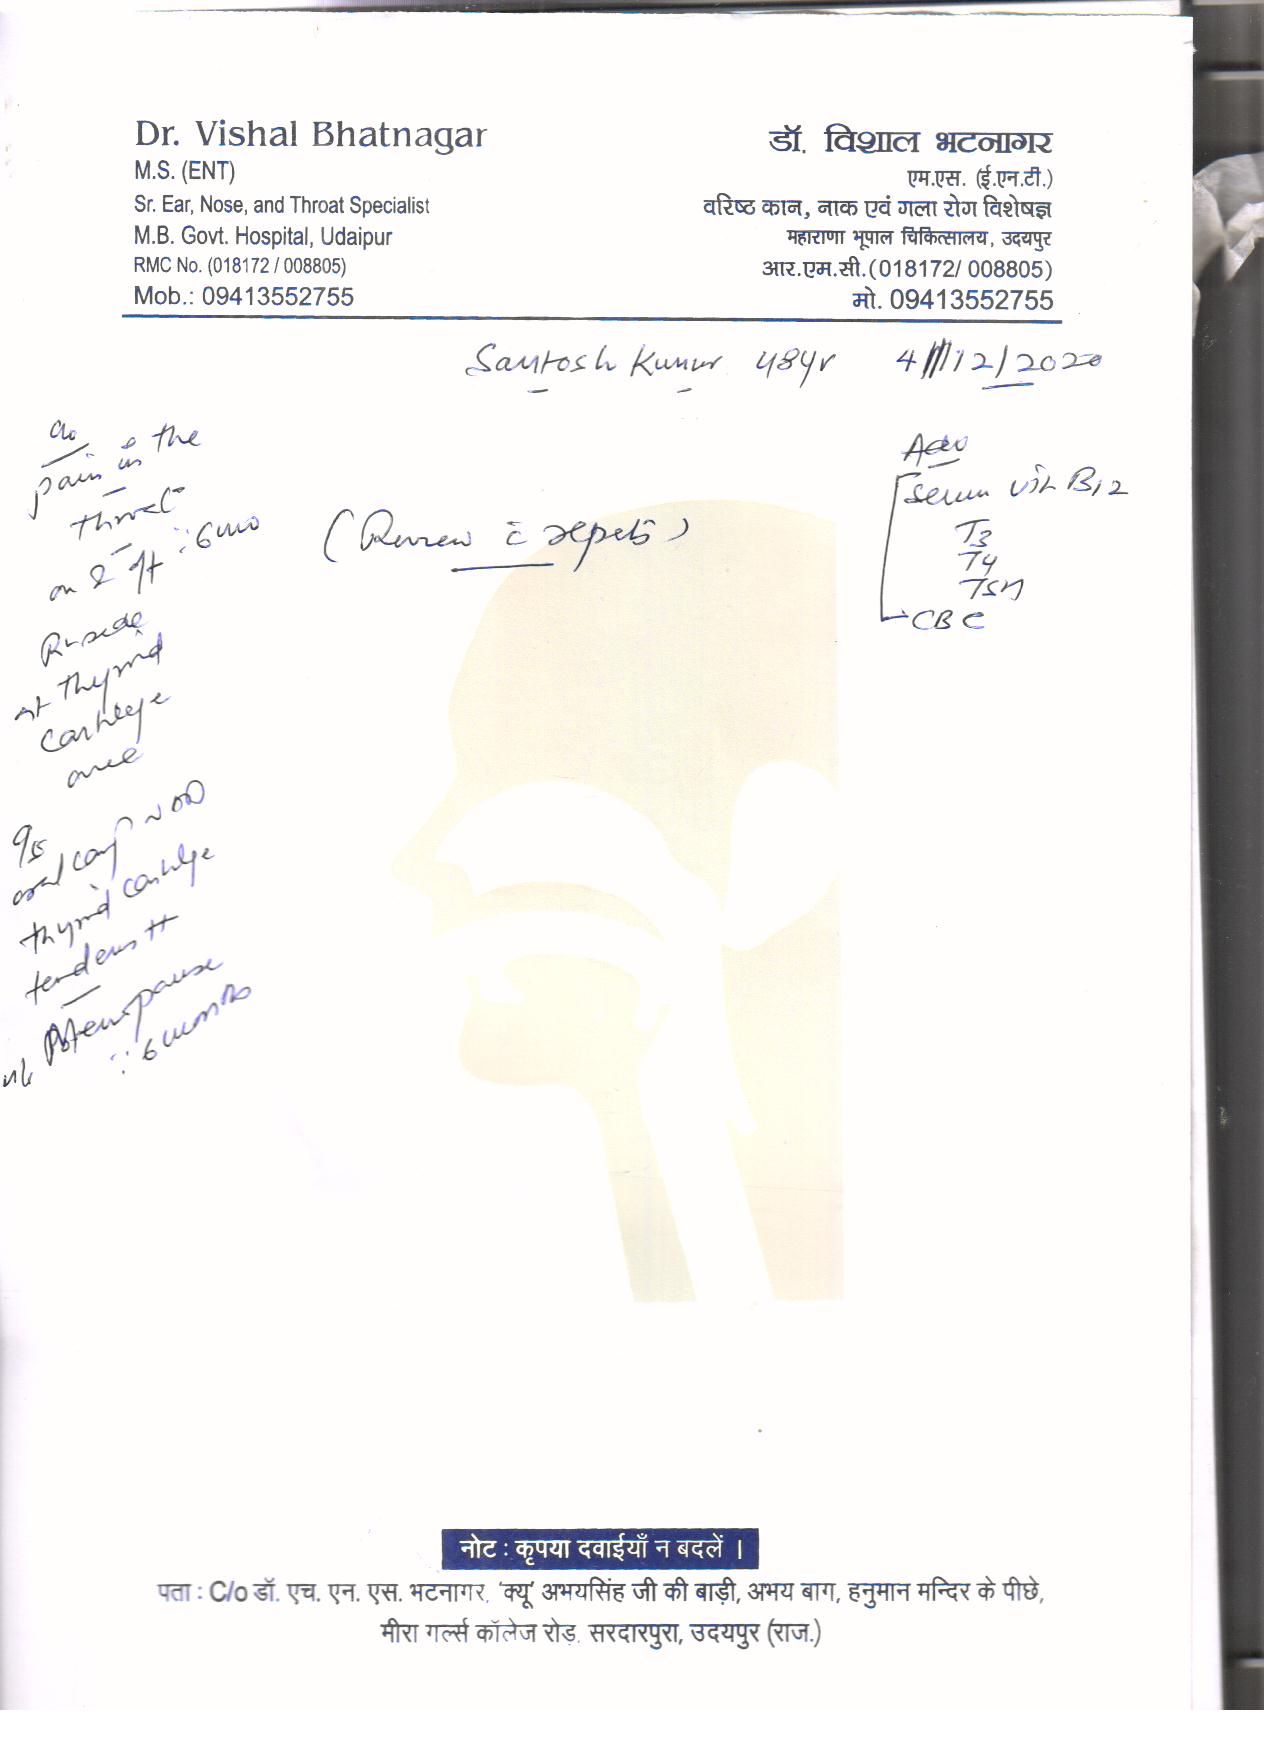 Dr. Vishal Bhatnagar
M.S. (ENT)
Sr. Ear, Nose, and Throat Specialist
M.B. Govt. Hospital, Udaipur
RMC No. (018172 / 008805)
Mob.: 09413552755
डॉ. विशाल भटनागर
एम.एस. (ई.एन.टी.)
वरिष्ठ कान, नाक एवं गला रोग विशेषज्ञ
महाराणा भूपाल चिकित्सालय, उदयपुर
आर.एम.सी.(018172/ 008805)
मो. 09413552755
Santosh Kunwr 48yr 4/12/2020
c/o
pain in the
throat
on & off 6mo
Rt side
at thyroid
cartilege
area
O/E
oral cavity NAD
thyroid cartilge
tenderns ++
Postmenopause
6 months
(Review c̄ repots)
Adv
Serum vit B12
T3
T4
TSH
CBC
नोट : कृपया दवाईयाँ न बदलें ।
पता : C/o डॉ. एच. एन. एस. भटनागर, 'क्यू' अभयसिंह जी की बाड़ी, अभय बाग, हनुमान मन्दिर के पीछे,
मीरा गर्ल्स कॉलेज रोड़, सरदारपुरा, उदयपुर (राज.)